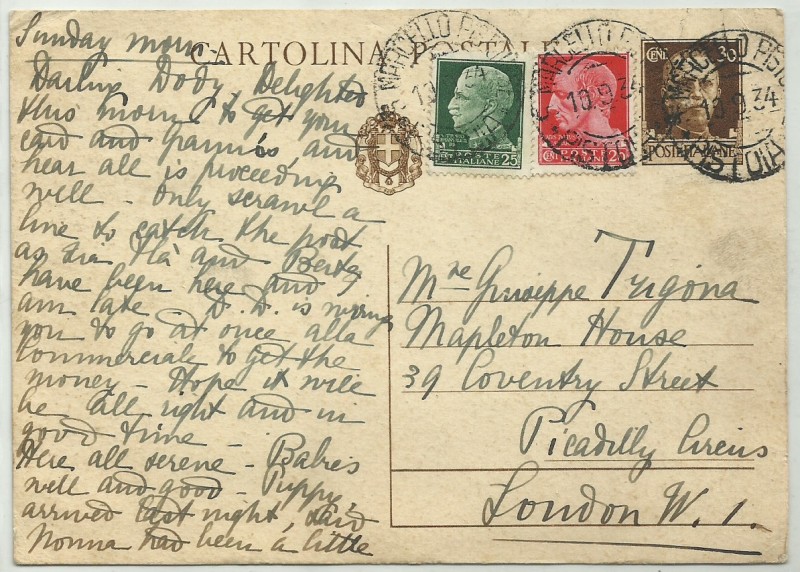 Sunday morn -
CARTOLINA POSTALE
Darling Dody, Delighted
this morn g to get your
card and grannie's, and
hear all is proceeding
well - Only scrawl a
line to catch the post
as Zia Ila and Berta
have been here and I
am late - D.D. is wiring
you to go at once alla
Commerciale to get the
money - Hope it will
be all right and in
good time -
Here all serene - Babies
well and good - Puppy
arrived last night, said
Nonna had been a little
MARCELLO PIST
10.9.34
PISTOIA
POSTE
ITALIANE
CENT 25
MARCELLO
10.9.34
PISTOIA
POSTE
ITALIANE
CENT 25
CENT 30
MARCELLO PISTO
10.9.34
PISTOIA
POSTE ITALIANE
Mre Giuseppe Trigona
Mapleton House
39 Coventry Street
Picadilly Circus
London W. 1.